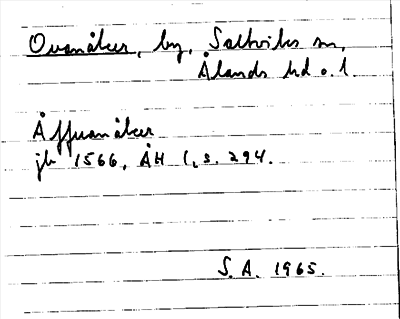 Ovanåker, by, Saltviks sn,
Ålands hd o. l.
Åffuanåker
jb 1566, ÅH 1, s. 294.
S. A. 1965.